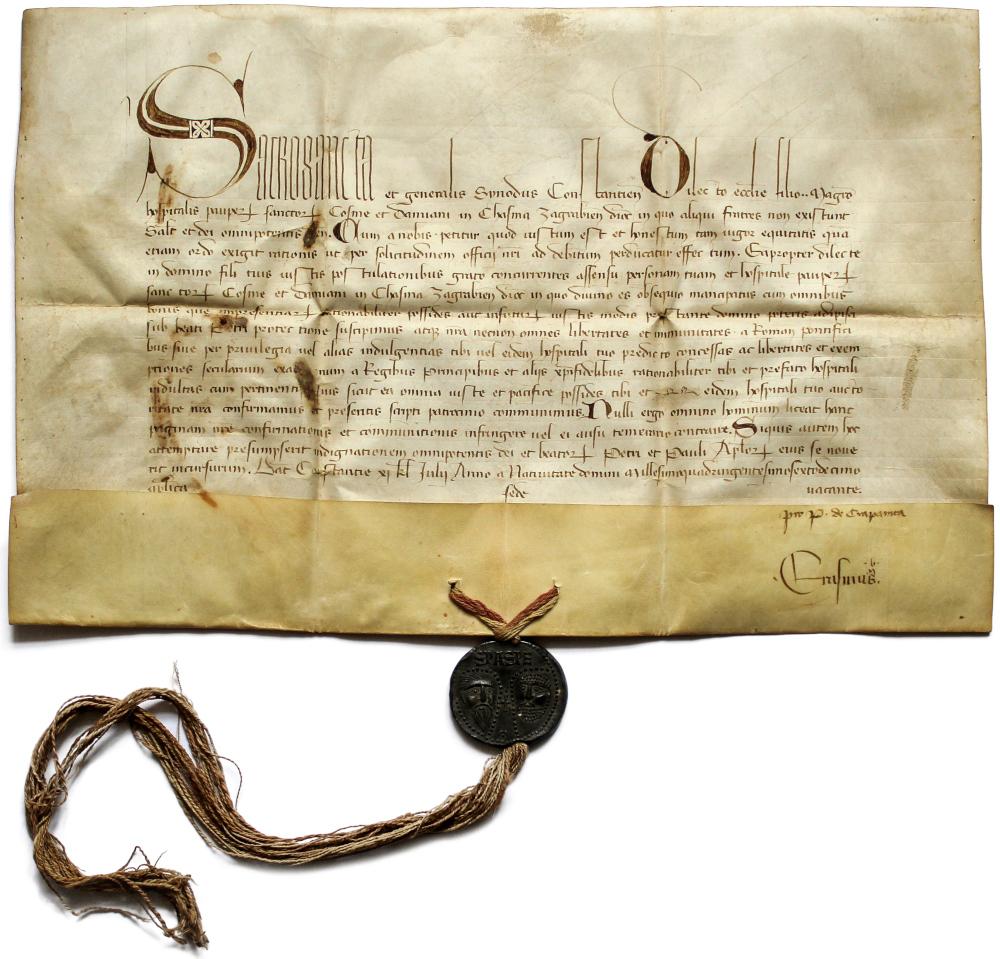 Sacrosancta et generalis Synodus Constantien Dilecto ecclie filio .. Magro
hospitalis pauper sanctor Cosme et Damiani in Chasma Zagrabien dioc in quo aliqui fratres non existunt
Salt et dei omnipotentis ben. Cum a nobis petitur quod iustum est et honestum tam vigor equitatis qua
etiam ordo exigit rationis ut per solicitudinem officii nri ad debitum perducatur effectum. Eapropter dilecte
in domino fili tuis iustis postulationibus grato concurrentes assensu personam tuam et hospitale pauper
sanctor Cosme et Damiani in Chasma Zagrabien dioc in quo divino es obsequio mancipatus cum omnibus
bonis que impresentiar rationabiliter possidet aut iustis modis prestante domino poterit adipisci
sub beati Petri protectione suscipimus atq nra necnon omnes libertates et immunitates a Roman pontifici
bus sive per privilegia vel alias indulgentias tibi vel eidem hospitali tuo predicto concessas ac libertates et exem
ptiones secularium exactionum a Regibus Principibus et aliis xpifidelibus rationabiliter tibi et prefato hospitali
indultas cum pertinentiis suis sicut ea omnia iuste et pacifice possides tibi et eidem hospitali tuo aucto
ritate nra confirmamus et presentis scripti patrocinio communimus. Nulli ergo omnino hominum liceat hanc
paginam nre confirmationis et communitionis infringere vel ei ausu temerario contraire. Siquis autem hoc
attemptare presumpserit indignationem omnipotentis dei et beator Petri et Pauli Aplor eius se nove
rit incursurum. Dat Constantie xi kl Julii Anno a Nativitate domini Millesimoquadringentesimosextodecimo
aplica sede vacante.
pro P. de Trapanita
Erasmus.
SPASPE